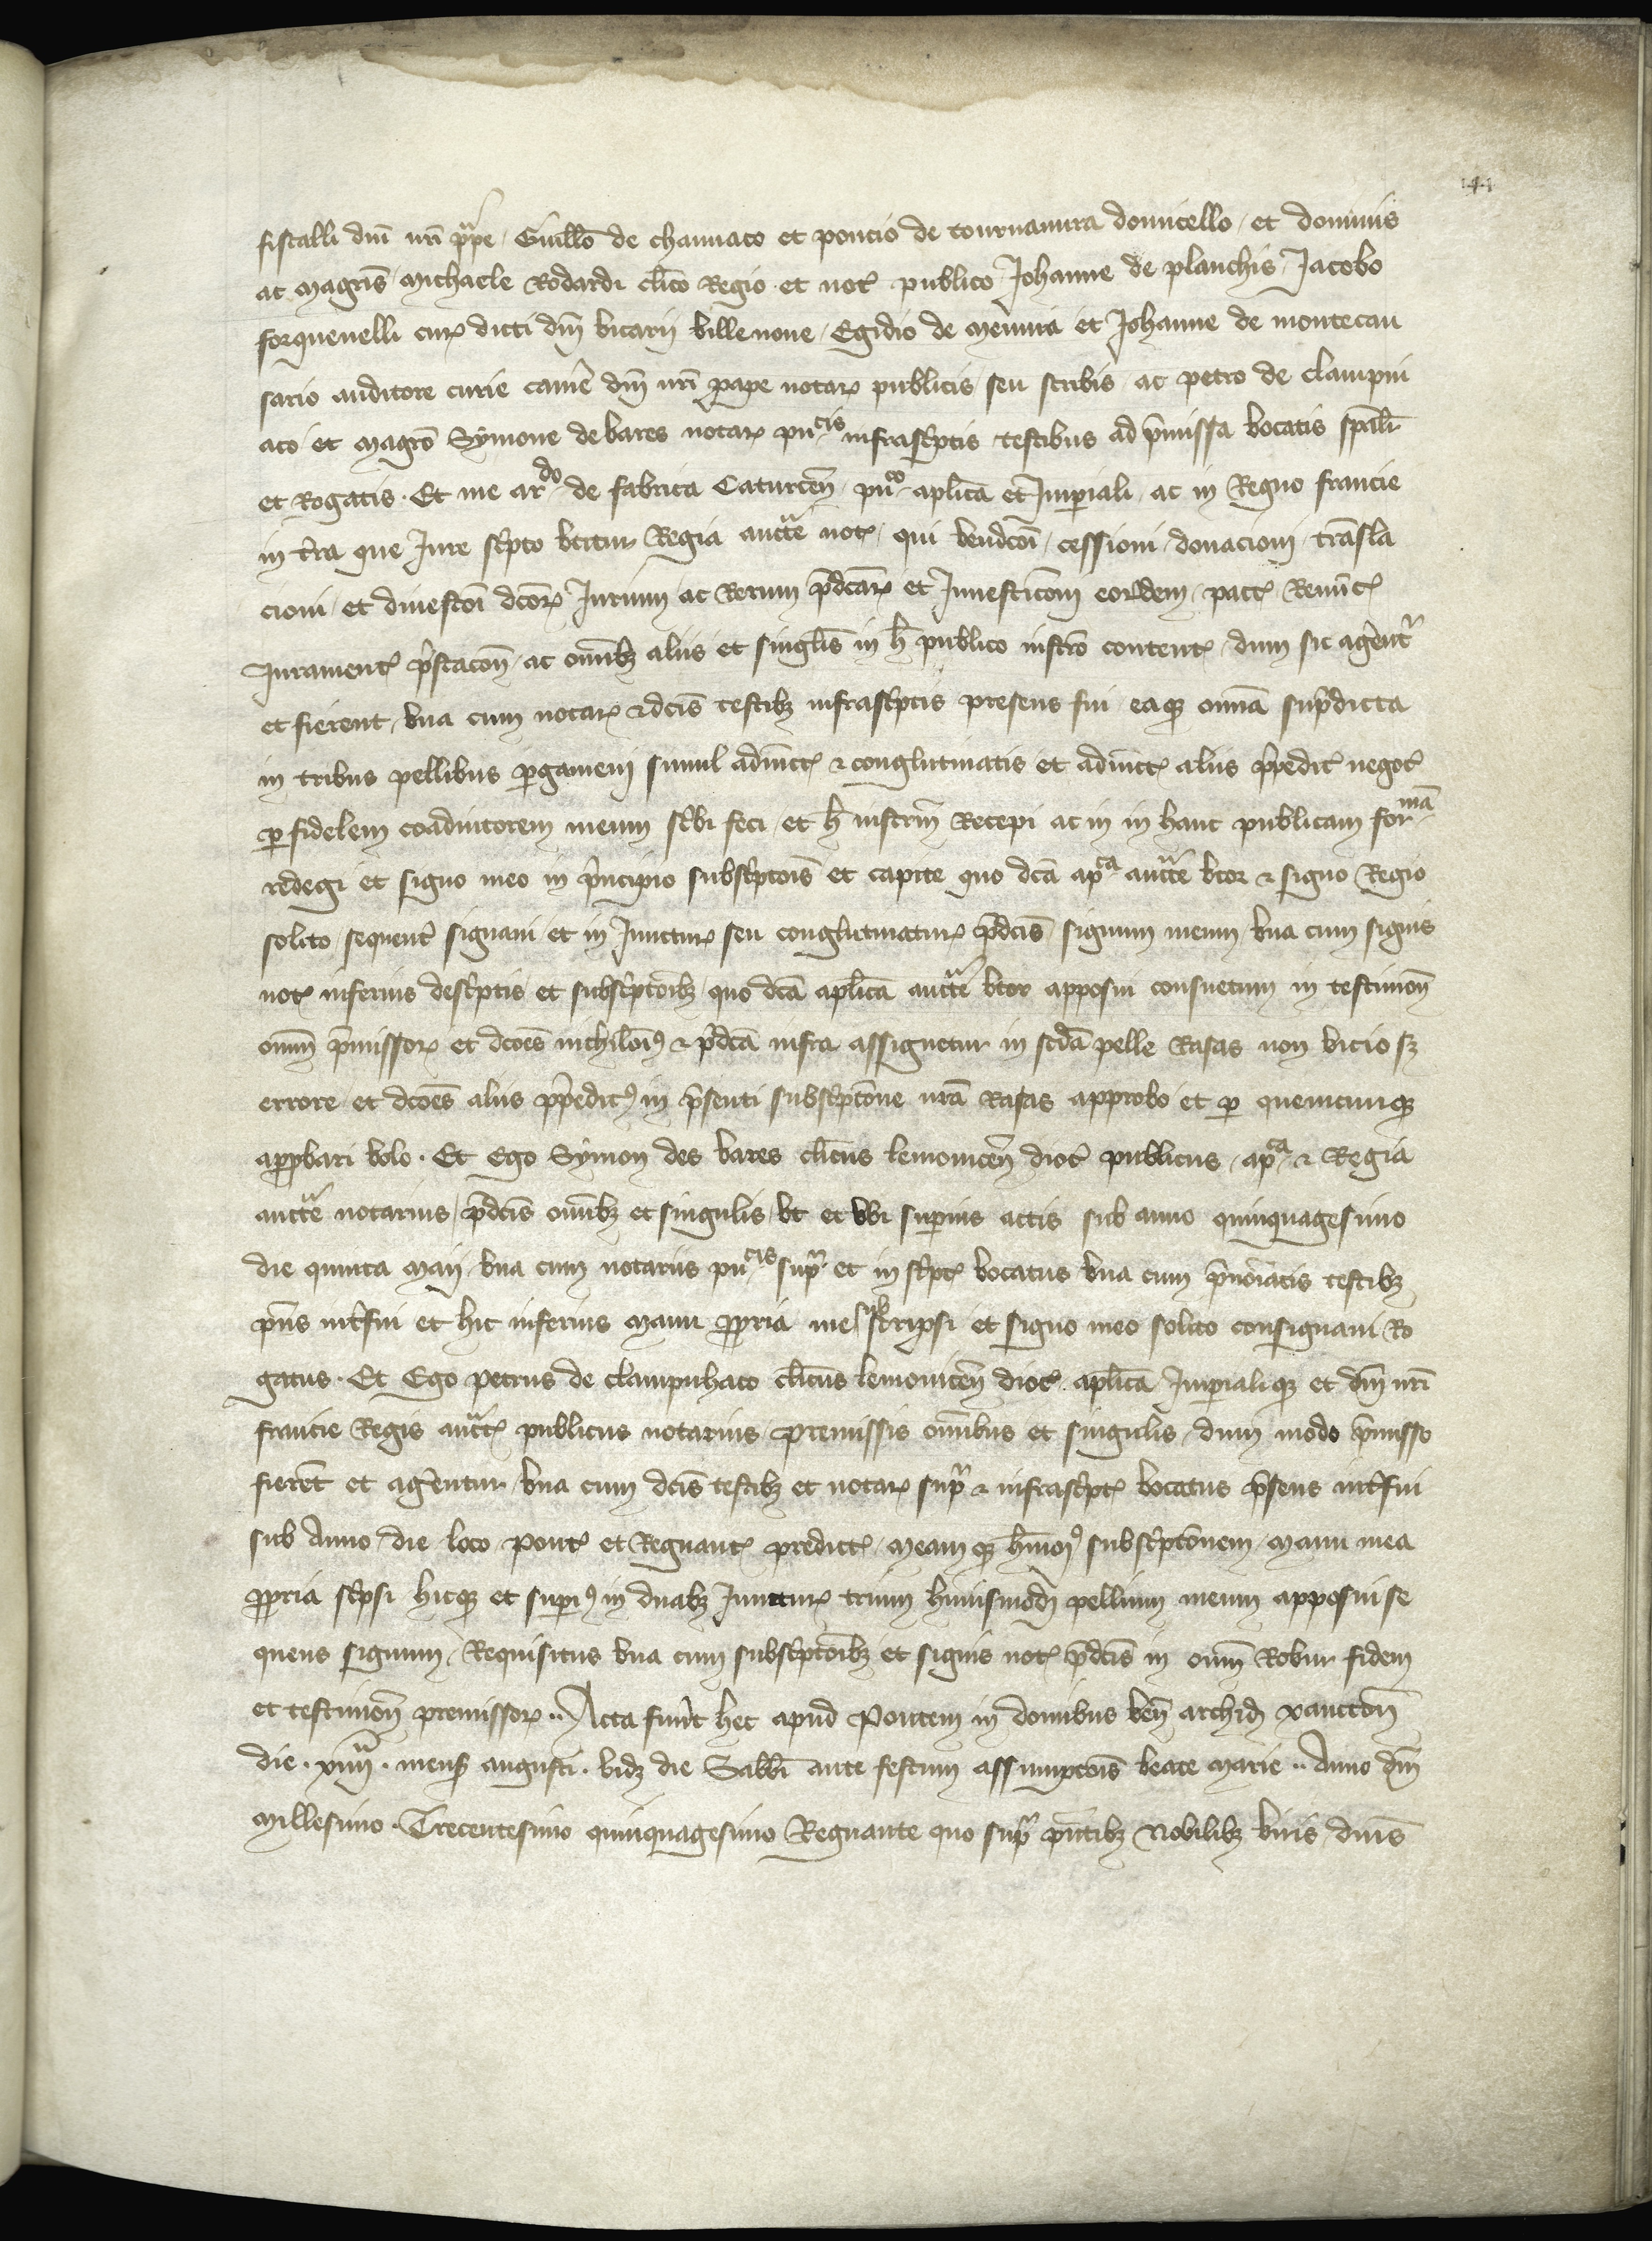 141
fiscalli dm̄ nr̄i pp̄e / Guill̄o de channaco et poncio de tournamira domicello / et dominis
ac Magr̄is / Michaele Rodardi cl̄ico Regio et not publico Johanne de planchis / Jacobo
forquenelli cur dicti dn̄i vicarii villenove / Egidio de Mēnnia et Johanne de montecau
sario auditore curie cam̄e dn̄i nr̄i pape notar publicis / seu scribis / ac petro de clampni
aco et magr̄o Symone de vares notar pu cis infrasc̄ptis testibus ad p̄missa vocatis sp̄alr̄
et Rogatis · Et me ar do de fabrica Caturcen̄ / pu co apl̄ica et Imperiali / ac in Regno francie
in t̄ra que Jure sc̄pto utitur Regia auct̄e not / qui vendc̄oi / cessioni / donacioni / tr̄asla
cioni / et divestc̄oi dc̄or Jurium ac Rerum p̄dc̄ar et Investic̄oni eor̄dem / pact Renūc
Jurament p̄stac̄on / ac om̄ibz aliis et singl̄is in h̄ publico instr̄o content / dum sic agent̄r
et fierent / vna cum notar & dc̄is testibz infrasc̄ptis presens fui / eaq om̄ia sup̄dicta
in tribus pellibus pergameni simul adiūct & conglutinatis et adiūct aliis p̄pedit negot
per fidelem coadiutorem meum sc̄bi feci / et h̄ instrm̄ Recepi ac in in hanc publicam for mā
redegi et signo meo in p̄ncipio subsc̄ptōis et capite quo dc̄a ap ca auct̄e vtor & signo Regio
solito / sequent̄ signavi et in Junctur seu conglutinatur p̄dc̄is signum meum / vna cum signis
not inferius desc̄ptis et subsc̄ptoībz / quo dc̄a apl̄ica auct̄e vtor apposui consuetum in testimon̄
om̄m p̄missor et dc̄ões nichilōi9 & p̄dc̄a infra assignetur in sc̄da pelle Rasas non vicio sz
errore et dc̄ões aliis p̄pedit9 in p̄senti subsc̄ptōne nrā Rasas approbo et per quemcumq
approbari volo · Et Ego Symon des vares cl̄icus lemovicen̄ dioc̄ publicus / ap ca & Regia
auct̄e notarius / p̄dc̄is om̄ibz et singulis / vt et vbi superius actis sub anno quinquagesimo
die quinta Maij / vna cum notariis pu cis sup̄ et in sc̄pt vocatus vna cum p̄nōiatis testibz
pn̄s int̄fui et hic inferius Manu propria me sub scripsi et signo meo solito consignavi Ro
gatus · Et Ego petrus de clampnhaco cl̄icus lemovicen̄ dioc̄ apl̄ica Imperialiq et dn̄i nr̄i
francie Regis auct publicus notarius / premissis om̄ibus et singulis / dum modo p̄misso
fierēt et agentur / vna cum dc̄is testibz et notar sup̄ & infrasc̄pt vocatus p̄sens int̄fui
sub Anno / die loco pont et Regnant predict / Meamq h̄moi9 subsc̄ptōnem / Manu mea
propria sc̄psi hicq et super9 in duabz Junctur trium huiusmōdi pellium meum apposui se
quens signum / Requisitus vna cum subsc̄ptōibz et signis not p̄dc̄is in om̄m Robur fidem
et testimon̄ premissor ·· Acta fuūt hec apud Pontem in domibus ven̄ archid xancton̄
die · xiiiia · mens augusti · vidz die Sabb̄i ante festum assumptōis beate Marie ·· Anno dn̄i
Millesimo · Trecentesimo quinquagesimo Regnante quo sup̄ pn̄tibz Nobilibz viris / dn̄is